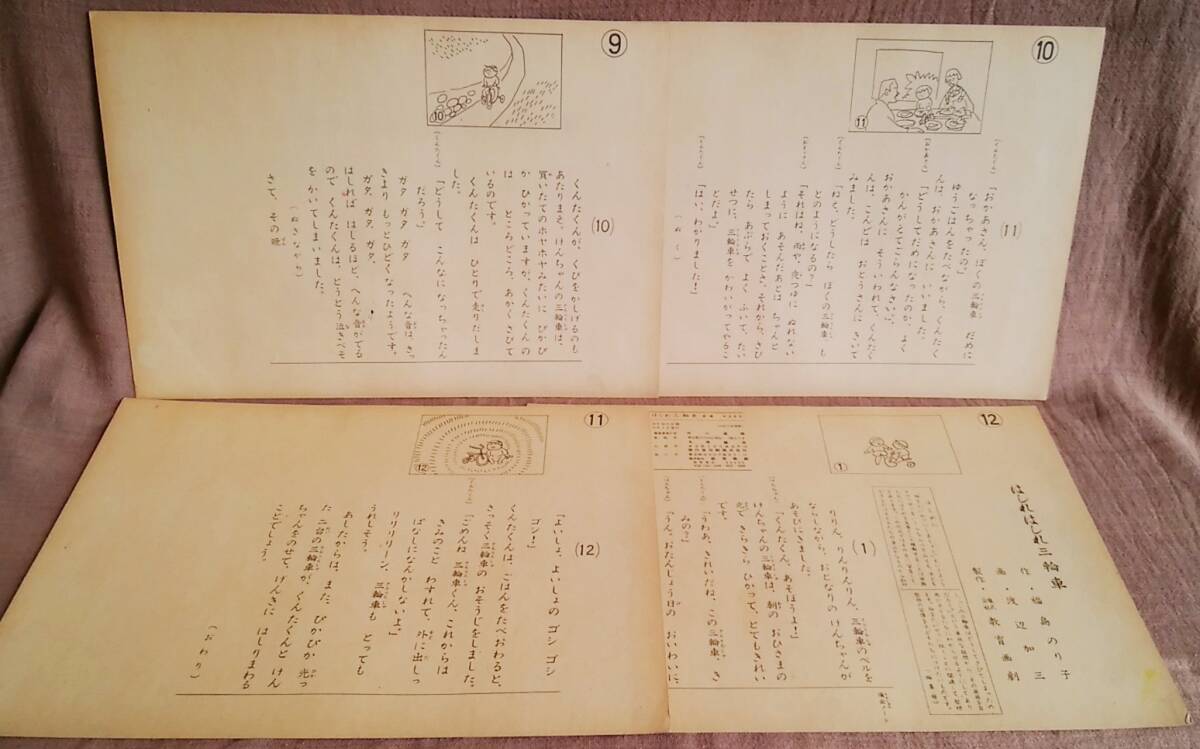 ⑨
⑩
(10)
くんたくんが、くびをかしげるのも
あたりまえ。けんちゃんの三輪車は、
買いたてのホヤホヤみたいに ぴかぴ
か ひかっていますが、くんたくんの
は ところどころ、あかく さびて
いるのです。
くんたくんは ひとりで 走りだしま
した。
「どうして こんなに なっちゃったん
だろう。」
ガタ ガタ ガタ へんな音は、さっ
きより もっとひどくなったようです。
ガタ、ガタ、ガタ、
はしれば はしるほど、へんな音がでる
ので くんたくんは、とうとう 泣きべそ
を かいてしまいました。
(ぬきながら)
さて、その晩
⑩
⑪
(11)
「おかあさん、ぼくの三輪車 だめに
なっちゃったの。」
ゆうごはんをたべながら、くんたく
んは、おかあさんに いいました。
「どうしてだめになったのか、よく
かんがえてごらんなさい。」
おかあさんに そういわれて、くんたく
んは、こんどは おとうさんに きいて
みました。
「ねえ、どうしたら ぼくの三輪車 も
とのようになるの？」
「それはね、雨や、夜つゆに ぬれない
ように あそんだあとは ちゃんと
しまっておくことさ。それから、さび
たら あぶらで よく ふいて、たい
せつに、三輪車を かわいがってやるこ
とだよ。」
「はい、わかりました！」
(ぬく)
⑪
⑫
(12)
「よいしょ、よいしょの ゴシ ゴシ
ゴシ！」
くんたくんは、ごはんをたべおわると、
さっそく 三輪車の おそうじをしました。
「ごめんね 三輪車くん、これからは
きみのこと わすれて、外に出しっ
ぱなしになんかしないよ。」
リリリリーン、三輪車も とっても
うれしそう。
あしたからは、また、ぴかぴか 光っ
た 二台の三輪車が、くんたくんと けん
ちゃんをのせて、げんきに はしりまわる
ことでしょう。
(おわり)
⑫
①
はしれはしれ三輪車
作・福島のり子
画・渡辺加三
製作・教育画劇
(1)
りりん、りんりんりん、三輪車のベルを
ならしながら、おとなりの けんちゃんが
あそびにきました。
「くんたくん、あそぼうよ！」
けんちゃんの三輪車は、朝の おひさまの
光で きらきら ひかって、とてもきれい
です。
「うわあ、きれいだね、この三輪車、き
みの？」
「うん、おたんじょう日の おいわいに、